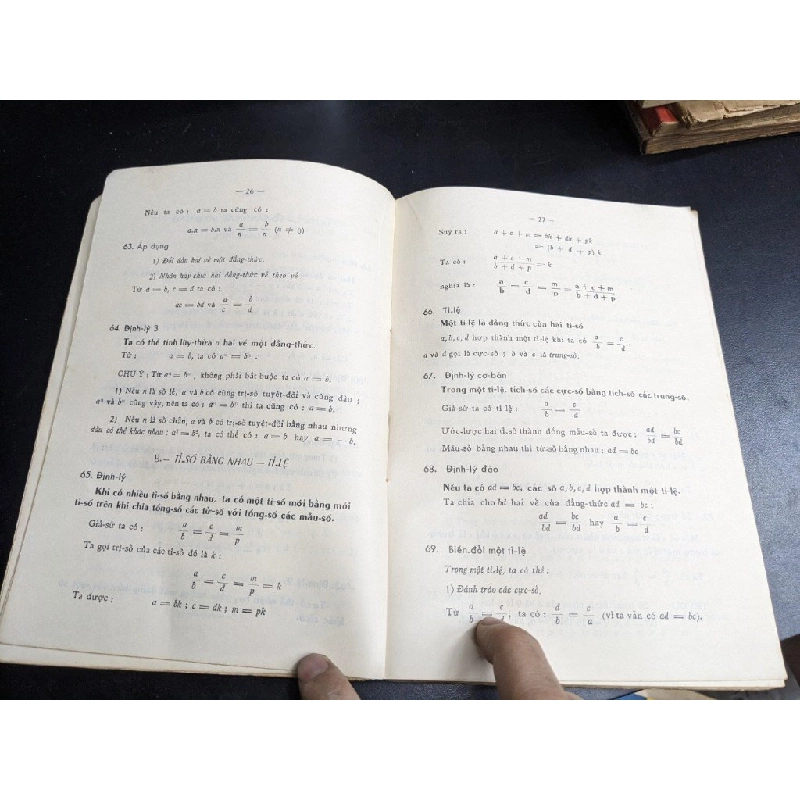 — 26 —
Nếu ta có : a = b ta cũng có :
a.n = b.n và a/n = b/n (n ≠ 0)
63. Áp dụng
1) Đổi dấu hai vế một đẳng-thức.
2) Nhân hay chia hai đẳng-thức vế theo vế
Từ a = b, c = d ta có :
ac = bd và a/c = b/d
64. Định-lý 3
Ta có thể tính lũy-thừa n hai vế một đẳng-thức.
Từ : a = b, ta có aⁿ = bⁿ.
CHÚ Ý : Từ aⁿ = bⁿ, không phải bắt buộc ta có a = b.
1) Nếu n là số lẻ, a và b có cùng trị-số tuyệt-đối và cùng dấu ;
a³ và b³ cũng vậy, nên ta có : a³ = b³ thì ta cũng có : a = b.
2) Nếu n là số chẵn, a và b có trị-số tuyệt-đối bằng nhau nhưng
dấu có thể khác nhau : a² = b², ta có thể có : a = b hay a = – b.
TỈ-SỐ BẰNG NHAU — TỈ-LỆ
65. Định-lý
Khi có nhiều tỉ-số bằng nhau, ta có một tỉ-số mới bằng mỗi
tỉ-số trên khi chia tổng-số các tử-số với tổng-số các mẫu-số.
Giả-sử ta có : a/b = c/d = m/p
Ta gọi trị-số của các tỉ-số đó là k :
a/b = c/d = m/p = k
Ta được : a = bk ; c = dk ; m = pk
— 27 —
Suy ra : = bk + dk + pk
= (b + d + p) k
Ta có : = k
nghĩa là : a/b = c/d = m/p = a + c + m/b + d + p
66. Tỉ-lệ
Một tỉ-lệ là đẳng thức của hai tỉ-số
a, b, c, d hợp thành một tỉ-lệ khi ta có a/b = c/d
a và d gọi là cực-số ; b và c là trung-số.
67. Định-lý cơ-bản
Trong một tỉ-lệ, tích-số các cực-số bằng tích-số các trung-số.
Giả-sử ta có tỉ lệ : a/b = c/d
Ước-lược hai tỉ-số thành đồng mẫu-số ta được : ad/bd = bc/bd
Mẫu-số bằng nhau thì tử-số bằng nhau : ad = bc
68. Định-lý đảo
Nếu ta có ad = bc, các số a, b, c, d hợp thành một tỉ-lệ.
Ta chia cho bd hai vế của đẳng-thức ad = bc :
ad/bd = bc/bd hay a/b = c/d
69. Biến-đổi một tỉ-lệ
Trong một tỉ-lệ, ta có thể :
1) Đánh tráo các cực-số.
Từ a/b = c/d, ta có : d/b = c/a (vì ta vẫn có ad = bc).